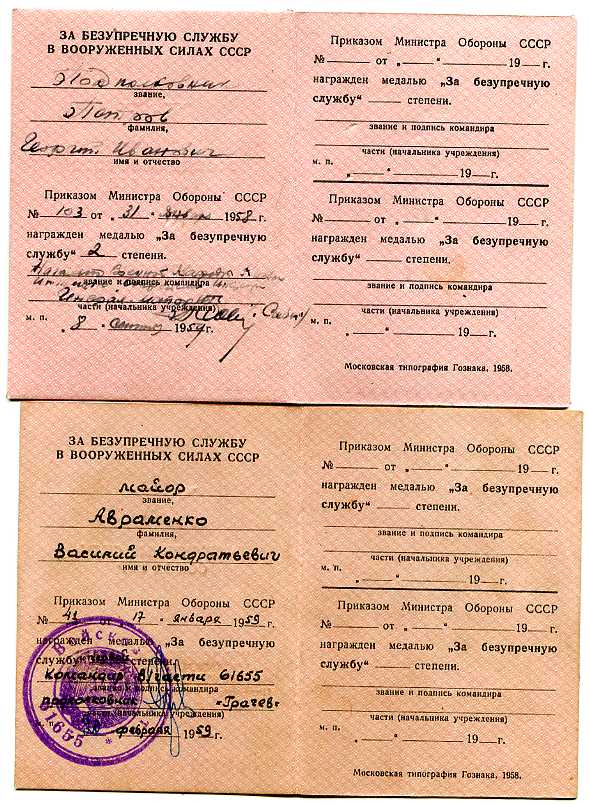 ЗА БЕЗУПРЕЧНУЮ СЛУЖБУ
В ВООРУЖЕННЫХ СИЛАХ СССР
Подполковник
звание,
Петров
фамилия,
Георгий Иванович
имя и отчество
Приказом Министра Обороны СССР
№ 103 от „31“ 1958 г.
награжден медалью „За безупречную
службу“ 2 степени.
звание и подпись командира
Генерал-майор
части (начальника учреждения)
м. п. „8“ 1959 г.
Приказом Министра Обороны СССР
№ — от „—“ 19— г.
награжден медалью „За безупречную
службу“ — степени.
звание и подпись командира
части (начальника учреждения)
м. п. „—“ 19— г.
Приказом Министра Обороны СССР
№ — от „—“ 19— г.
награжден медалью „За безупречную
службу“ — степени.
звание и подпись командира
части (начальника учреждения)
м. п. „—“ 19— г.
Московская типография Гознака, 1958.
ЗА БЕЗУПРЕЧНУЮ СЛУЖБУ
В ВООРУЖЕННЫХ СИЛАХ СССР
майор
звание,
Авраменко
фамилия,
Василий Кондратьевич
имя и отчество
Приказом Министра Обороны СССР
№ 41 от „17“ января 1959 г.
награжден медалью „За безупречную
службу“ первой степени.
Командир в/части 61655
звание и подпись командира
подполковник «Грачев»
части (начальника учреждения)
февраля 1959 г.
61655
Приказом Министра Обороны СССР
№ — от „—“ 19— г.
награжден медалью „За безупречную
службу“ — степени.
звание и подпись командира
части (начальника учреждения)
м. п. „—“ 19— г.
Приказом Министра Обороны СССР
№ — от „—“ 19— г.
награжден медалью „За безупречную
службу“ — степени.
звание и подпись командира
части (начальника учреждения)
м. п. „—“ 19— г.
Московская типография Гознака, 1958.